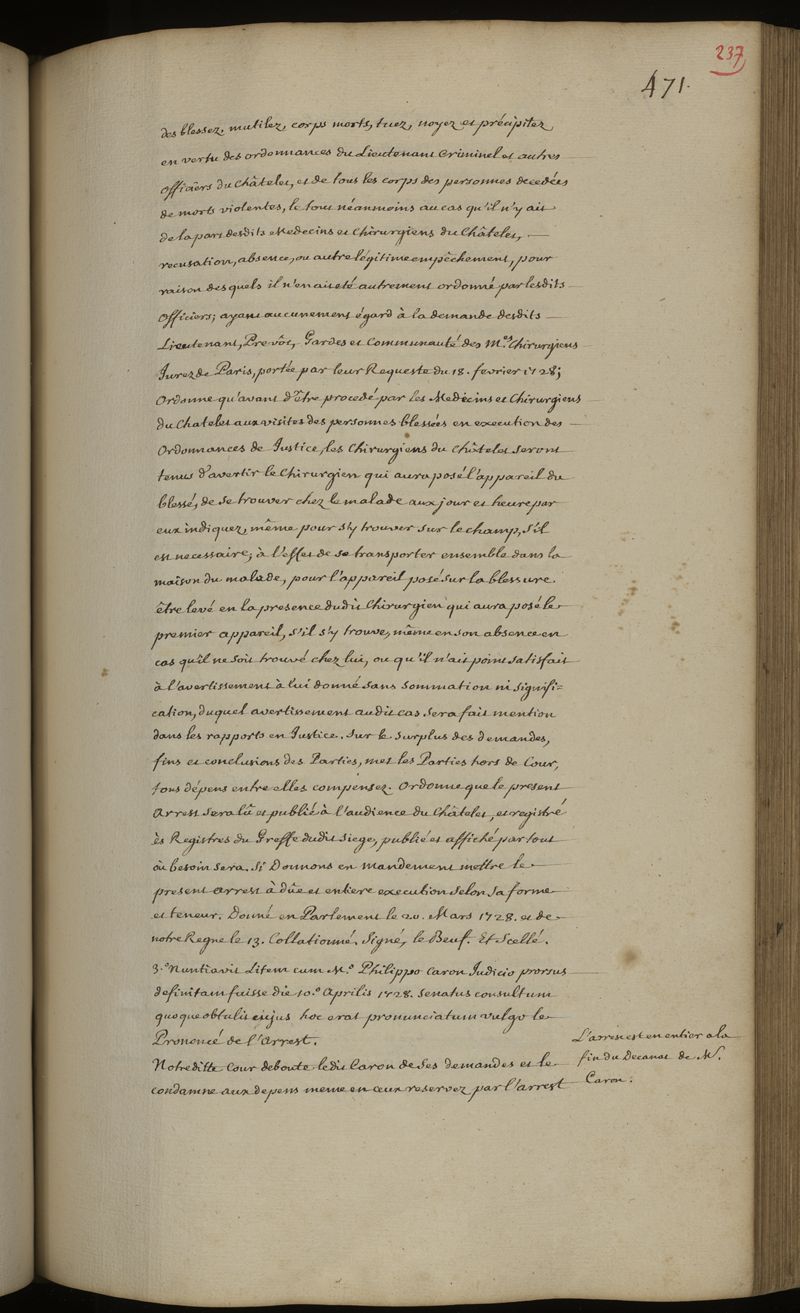 237
471.
des blessez, mutilez, corps morts, tuez, noyez et précipitez,
en vertu des ordonnances du Lieutenant Criminel et autres
officiers du châtelet, et de tous les corps des personnes decedées
de morts violentes, le tout néanmoins au cas qu'il n'y ait
de la part desdits Medecins et chirurgiens du Châtelet,
recusation, absence, ou autre légitime empêchement, pour
raison desquels il n'en ait été autrement ordonné par lesdits
officiers; ayant aucunement égard à la demande desdits
Lieutenant, Prevôt, Gardes et Communauté des M.es Chirurgiens
Jurez de Paris, portée par leur Requeste du 18. fevrier 1728;
Ordonne qu'avant d'être procedé par les Medecins et Chirurgiens
du Chatelet aux visites des personnes blessées en execution des
Ordonnances de Justice, les Chirurgiens du Châtelet seront
tenus d'avertir le Chirurgien qui aura posé l'appareil du
blessé, de se trouver chez le malade aux jour et heure par
eux indiquez, même pour s'y trouver sur le champ, s'il
est necessaire, à l'effet de se transporter ensemble dans la
maison du malade, pour l'appareil posé sur la blessure
être levé en la presence dudit Chirurgien qui aura posé le
premier appareil, s'il s'y trouve, même en son absence en
cas qu'il ne soit trouvé chez lui, ou qu'il n'ait point satisfait
à l'avertissement à lui donné sans sommation ni signifi=
cation, duquel avertissement audit cas sera fait mention
dans les rapports en Justice. sur le surplus des demandes,
fins et conclusions des Parties, met les Parties hors de Cour,
tous dépens entre elles compensez. Ordonne que le present
Arrest sera lû et publié à l'audience du Châtelet, et registré
ès Registres du Greffe dudit siege, publié et affiché partout
où besoin sera. Si Donnons en mandement mettre le
present arrest à dûe et entiere execution selon sa forme
et teneur. Donné en Parlement le 20. Mars 1728. et de
notre Regne le 13. Collationné. Signé, le Beuf. Et Scellé.
3.° Nuntiavit Litem cum M.° Philippo Caron Judicio prorsus
definitam fuisse die 10.° Aprilis 1728. senatus consultum
quoque obtulit cujus hoc erat pronunciatum vulgo le
Prononcé de l'Arrest.
Notreditte Cour deboute ledit Caron de ses demandes et le
condamne aux depens meme en ceux reservez par l'arrest
L'arrest est en entier a la
fin du Decanat de M.
Caron.